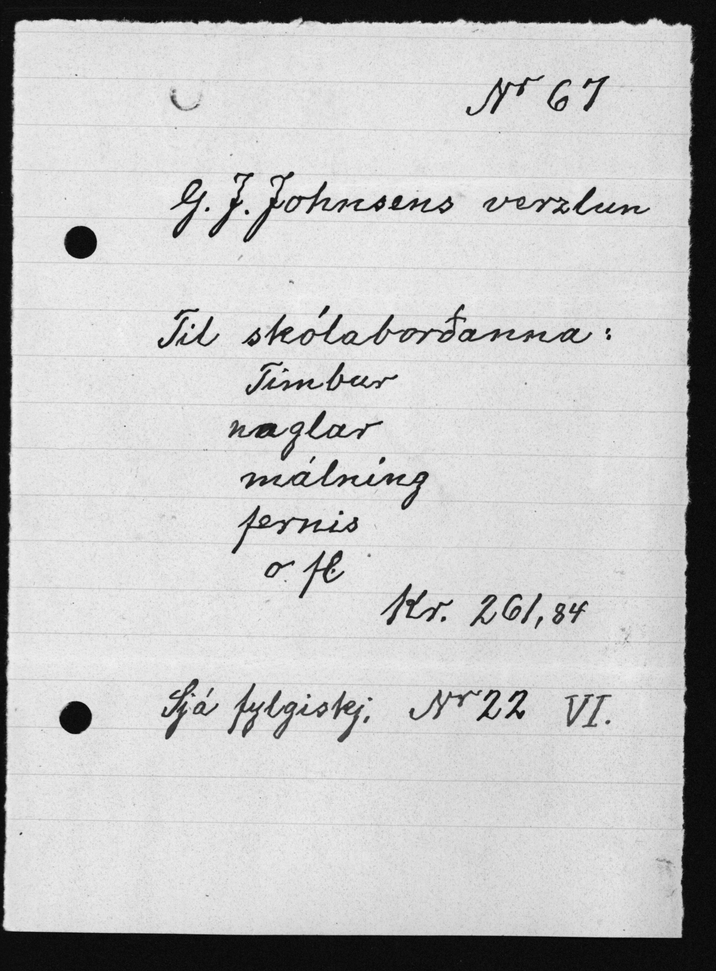 Nr 67
G. J. Johnsens verzlun
Til skólaborðanna:
Timbur
naglar
málning
fernis
o. fl
Kr. 261,84
Sjá fylgiskj. Nr 22 VI.